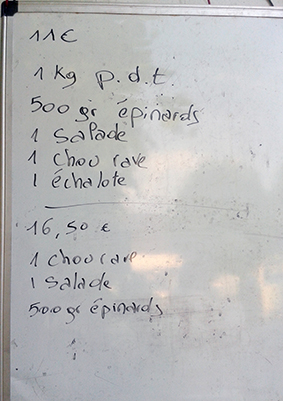 11€
1 kg p.d.t.
500 gr épinards
1 salade
1 chou rave
1 échalote
16,50 €
1 chou rave
1 salade
500 gr épinards